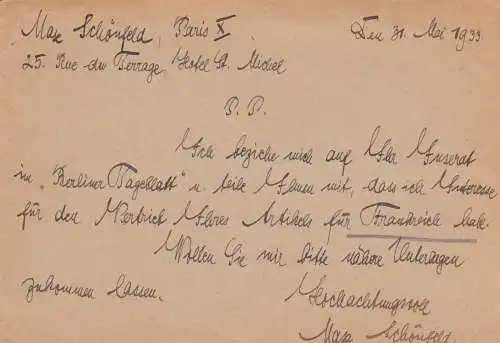 Max Schönfeld, Paris X Den 31. Mai 1933
25. Rue du Terrage, Hotel St. Michel
P. P.
Ich beziehe mich auf Ihr Inserat
im „Berliner Tageblatt" u. teile Ihnen mit, dass ich Interesse
für den Vertrieb Ihres Artikels für Frankreich habe.
Wollen Sie mir bitte nähere Unterlagen
zukommen lassen.
Hochachtungsvoll
Max Schönfeld.